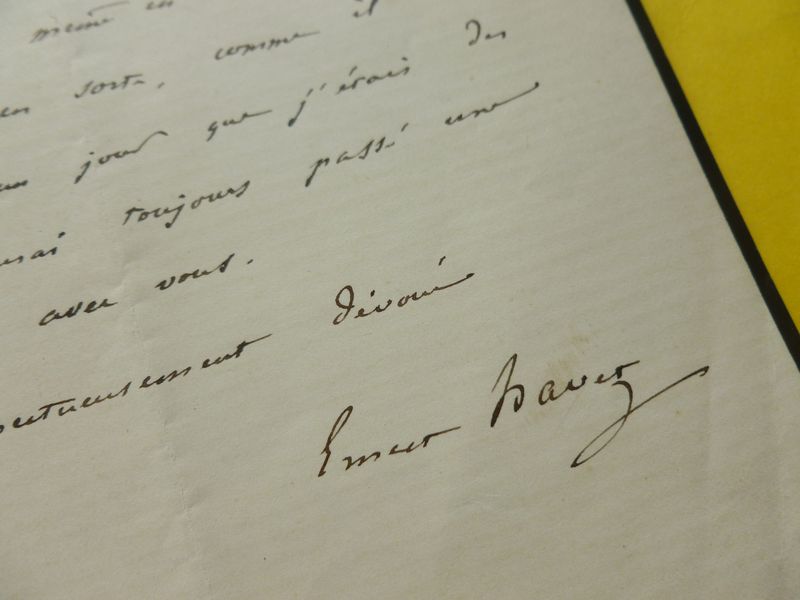 même en
sorte, comme il
jour que j'étais des
toujours passé une
avec vous.
dévoué
Ernest Havet